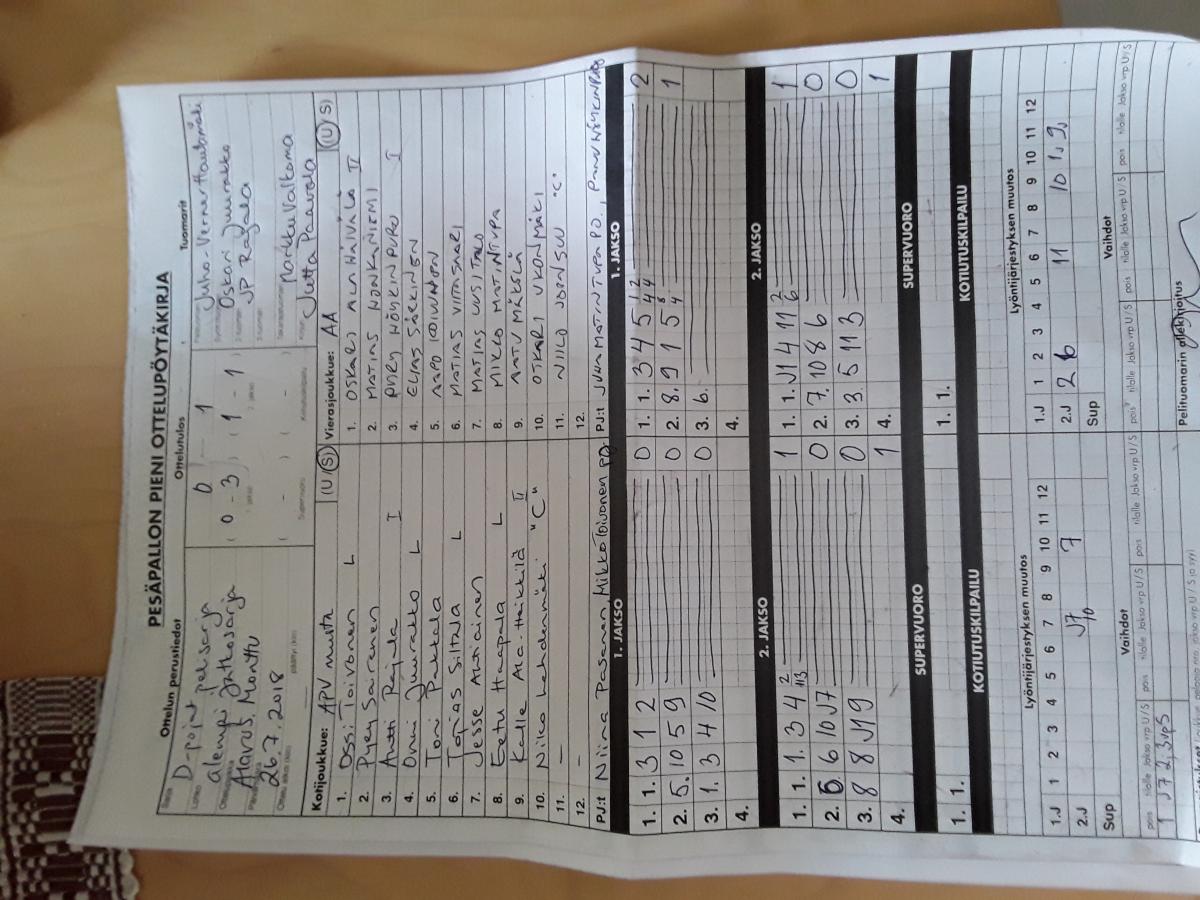 PESÄPALLON PIENI OTTELUPÖYTÄKIRJA
Ottelun perustiedot
Ottelutulos
Tuomarit
D-pojat
alempi jatkosarja
Alavus, Monttu
26.7.2018
0 - 1
(0 - 3) (1 - 1)
( - ) ( - )
Juha-Verneri
Oskari Juurakko
JP Rajala
Markku Valkama
Jutta Paavola
Kotijoukkue: APV Musta (U/S)
1. Ossi Toivonen L
2. Pyry Sairanen
3. Antti Rajala I
4. Onni Juurakko L
5. Toni Pakkala
6. Topias Siltala L
7. Jesse Ahtiainen
8. Eetu Haapala L
9. Kalle Ala-Heikkilä II
10. Niko Lehdenmäki "C"
11. -
12. -
PJ:t Niina Pasanen, Mikko Toivonen PO.
Vierasjoukkue: AA (U/S)
1. OSKARI ALANIVÄLÄ II
2. MATIAS HONKANIEMI
3. PYRY HÖYKINPURO I
4. ELIAS SÄRKINEN
5. AAPO KOIVUNEN
6. MATIAS VIITASAARI
7. MATIAS UUSITALO
8. MIKKO MATINTUPA
9. AATU MÄKELÄ
10. OTSKARI UKONMÄKI
11. NIILO JOENSUU "C"
12.
PJ:t JUHA MATINTUPA PO., PANU HÖYKINPURO
1. JAKSO
1. 1. 3 1 2 0
2. 5. 10 5 9 0
3. 1. 3 4 10 0
4.
1. JAKSO
1. 1. 3 4 5 4 4 2
2. 8. 9 1 5 4 1
3. 6.
4.
2. JAKSO
1. 1. 1. 3 4 1
2. 6. 6 10 J7 0
3. 8 8 J1 9 0
4. 1
2. JAKSO
1. 1. J1 4 11 1
2. 7. 10 8 6 0
3. 3 5 11 3 0
4. 1
SUPERVUORO
1. 1.
SUPERVUORO
1. 1.
KOTIUTUSKILPAILU
KOTIUTUSKILPAILU
Lyöntijärjestyksen muutos
1.J 1 2 3 4 5 6 7 8 9 10 11 12
2.J J7 10 7
Sup
Lyöntijärjestyksen muutos
1.J 1 2 3 4 5 6 7 8 9 10 11 12
2.J 2 6 11 10 1 J 9
Sup
Vaihdot
pois tilalle Jakso vrp U/S pois tilalle Jakso vrp U/S pois tilalle Jakso vrp U/S
1 J7 2, 3vp S
Vaihdot
pois tilalle Jakso vrp U/S pois tilalle Jakso vrp U/S pois tilalle Jakso vrp U/S
Pelituomarin allekirjoitus